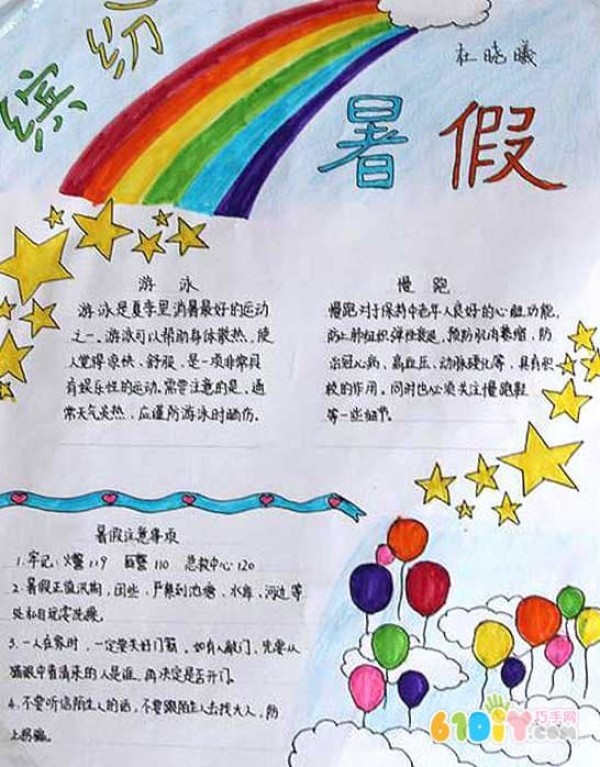 缤纷
杜晓曦
暑假
游泳
游泳是夏季里消暑最好的运动
之一。游泳可以帮助身体散热,使
人觉得凉快、舒服,是一项非常具
有娱乐性的运动。需要注意的是,通
常天气炎热,应谨防游泳时晒伤。
慢跑
慢跑对于保持中老年人良好的心脏功能,
防止肺组织弹性衰退,预防肌肉萎缩,防
治冠心病、高血压、动脉硬化等,具有积
极的作用。同时也必须关注慢跑鞋
等一些细节。
暑假注意事项
1.牢记:火警119 匪警110 急救中心120
2.暑假正值汛期,闷热,严禁到池塘、水库、河边等
处私自玩耍洗澡。
3.一人在家时,一定要关好门窗,如有人敲门,先要从
猫眼中看清来的人是谁,再决定是否开门。
4.不要听信陌生人的话,不要跟陌生人去找大人,防
上易骗。
610iY巧手网